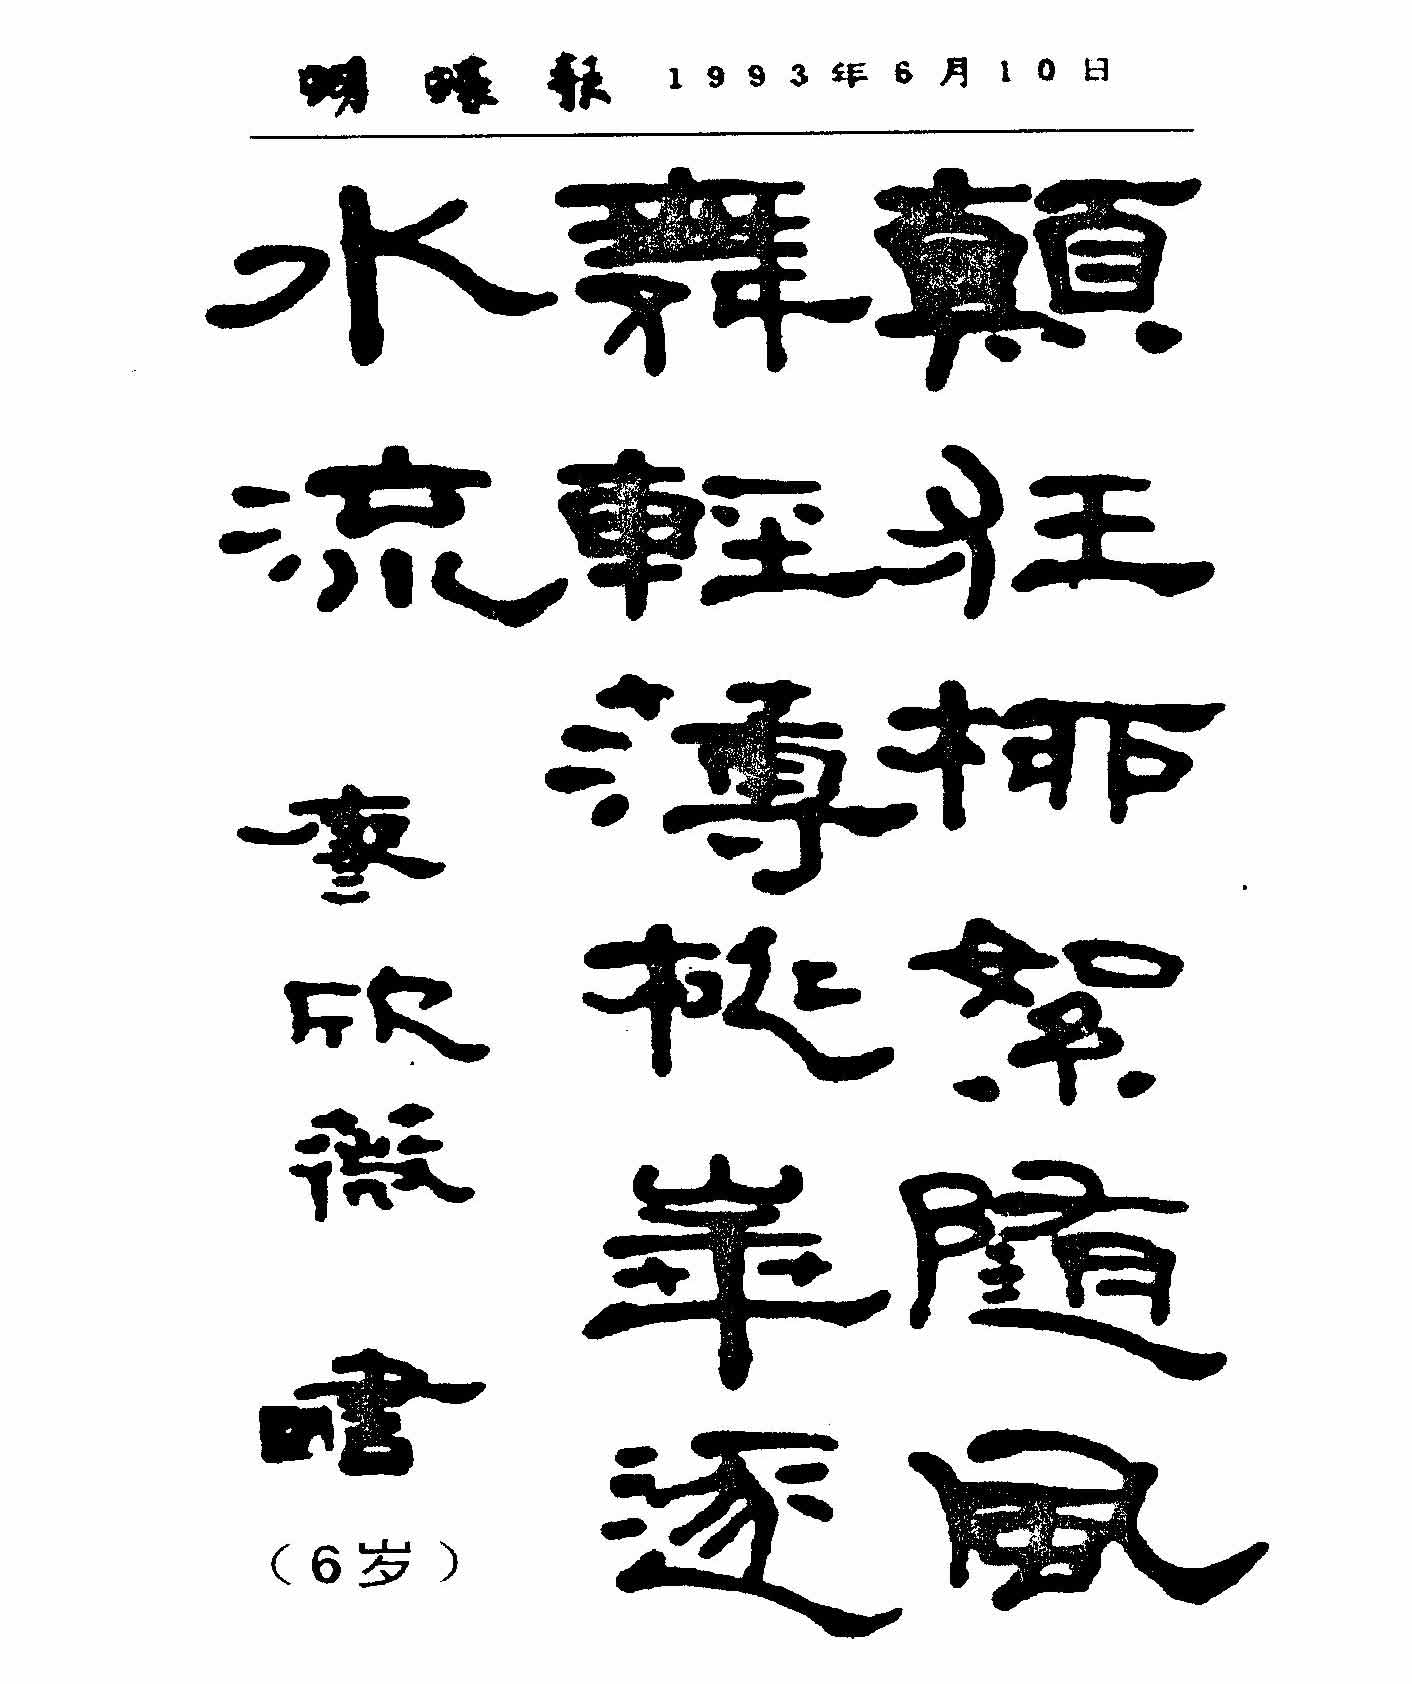 1993年6月10日
顛狂柳絮隨風
舞輕薄桃華逐
水流
欣薇 書
(6岁)